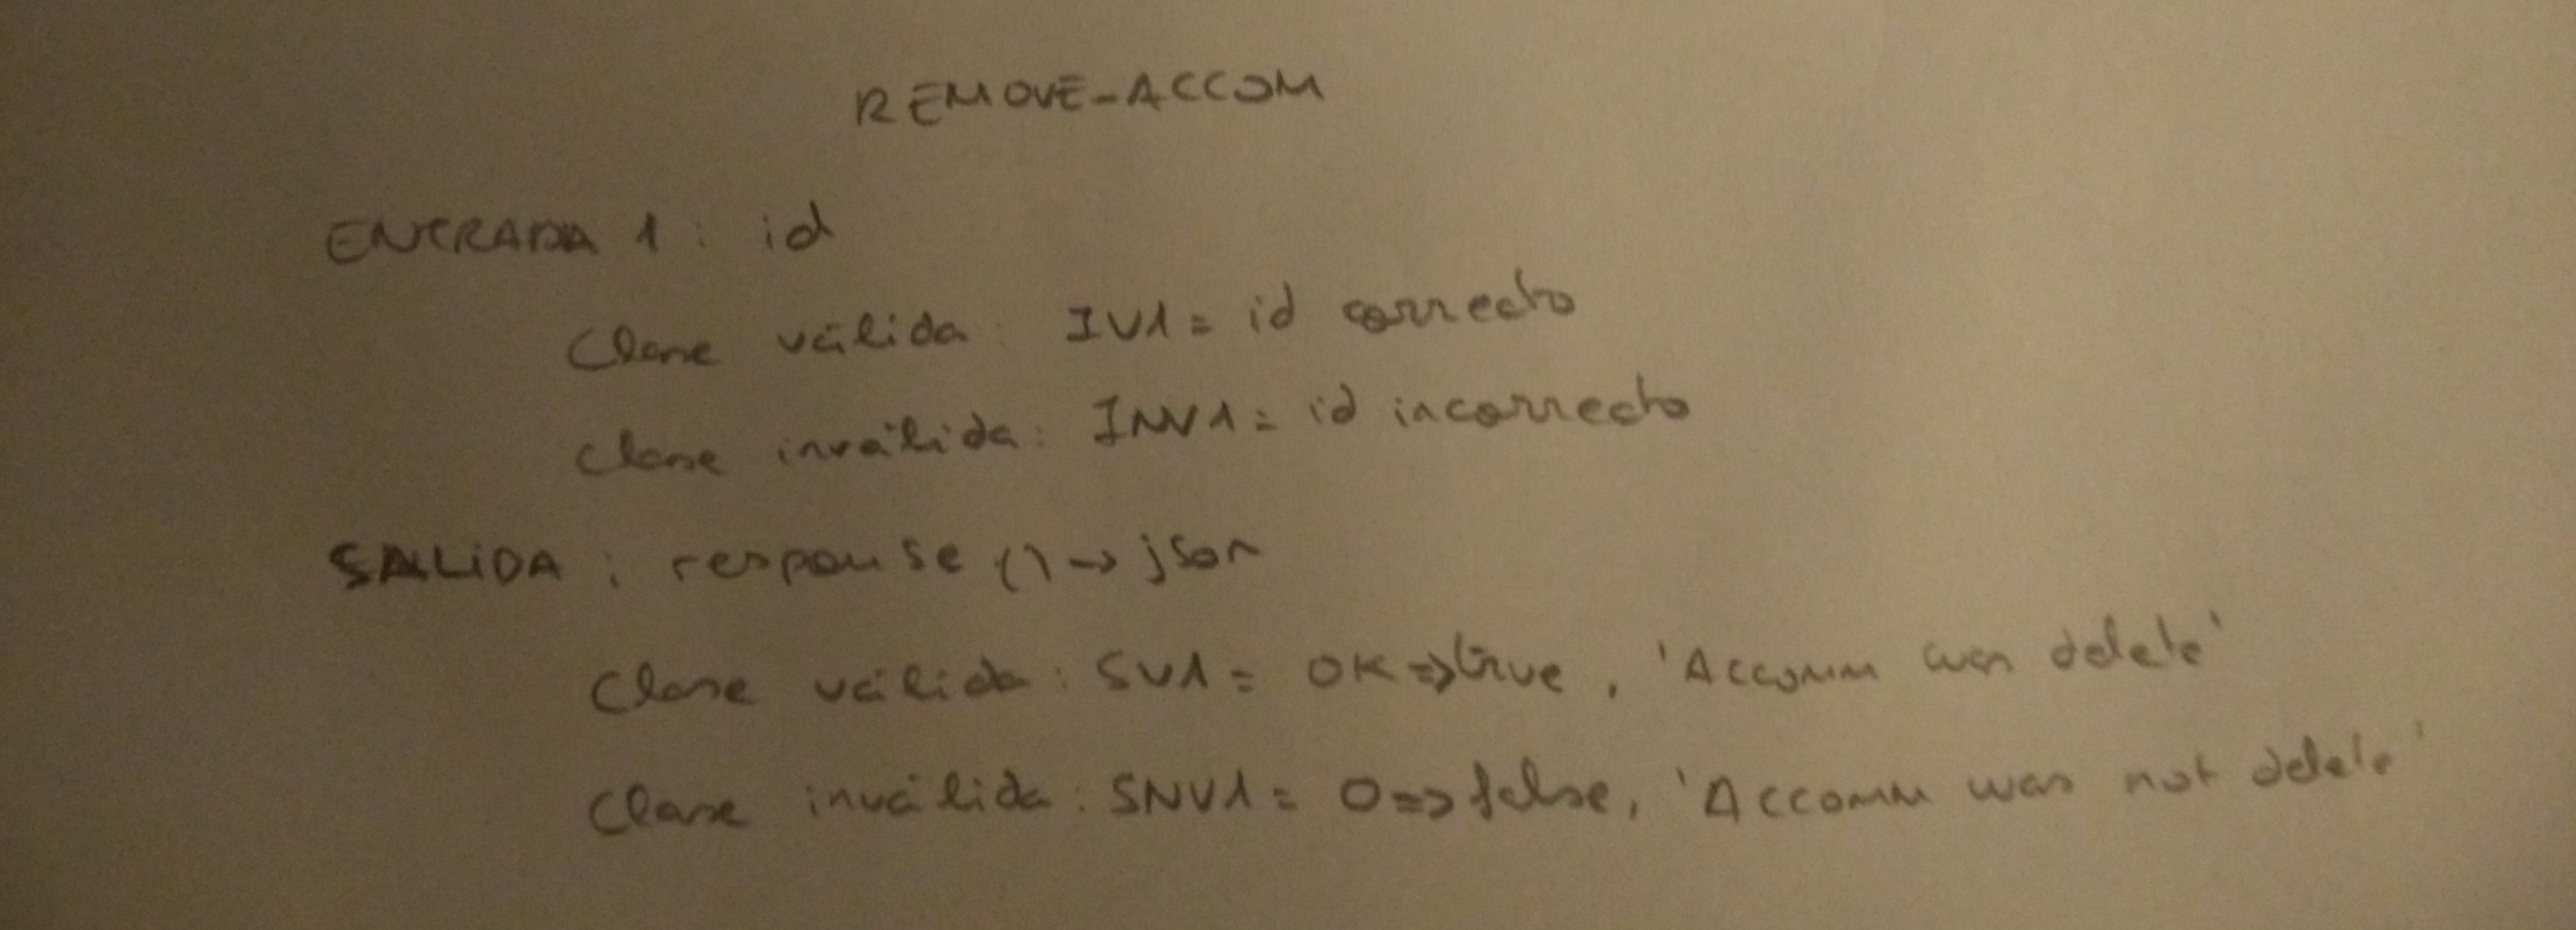 REMOVE-ACCOM
ENTRADA 1: id
Clase válida: IV1 = id correcto
Clase inválida: INV1 = id incorrecto
SALIDA: response ()->json
Clase válida: SV1 = OK=>true, 'Accomm was delete'
Clase inválida: SNV1 = O=>false, 'Accomm was not delete'